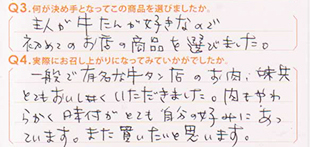 Q3.何が決め手となってこの商品を選びましたか。
主人が牛たんが好きなので
初めてのお店の商品を選びました。
Q4.実際にお召し上がりになってみていかがでしたか。
一般で有名な牛タン店のお肉、味共
とてもおいしくいただきました。肉もやわ
らかく味付がとても自分の好みにあっ
ています。また買いたいと思います。